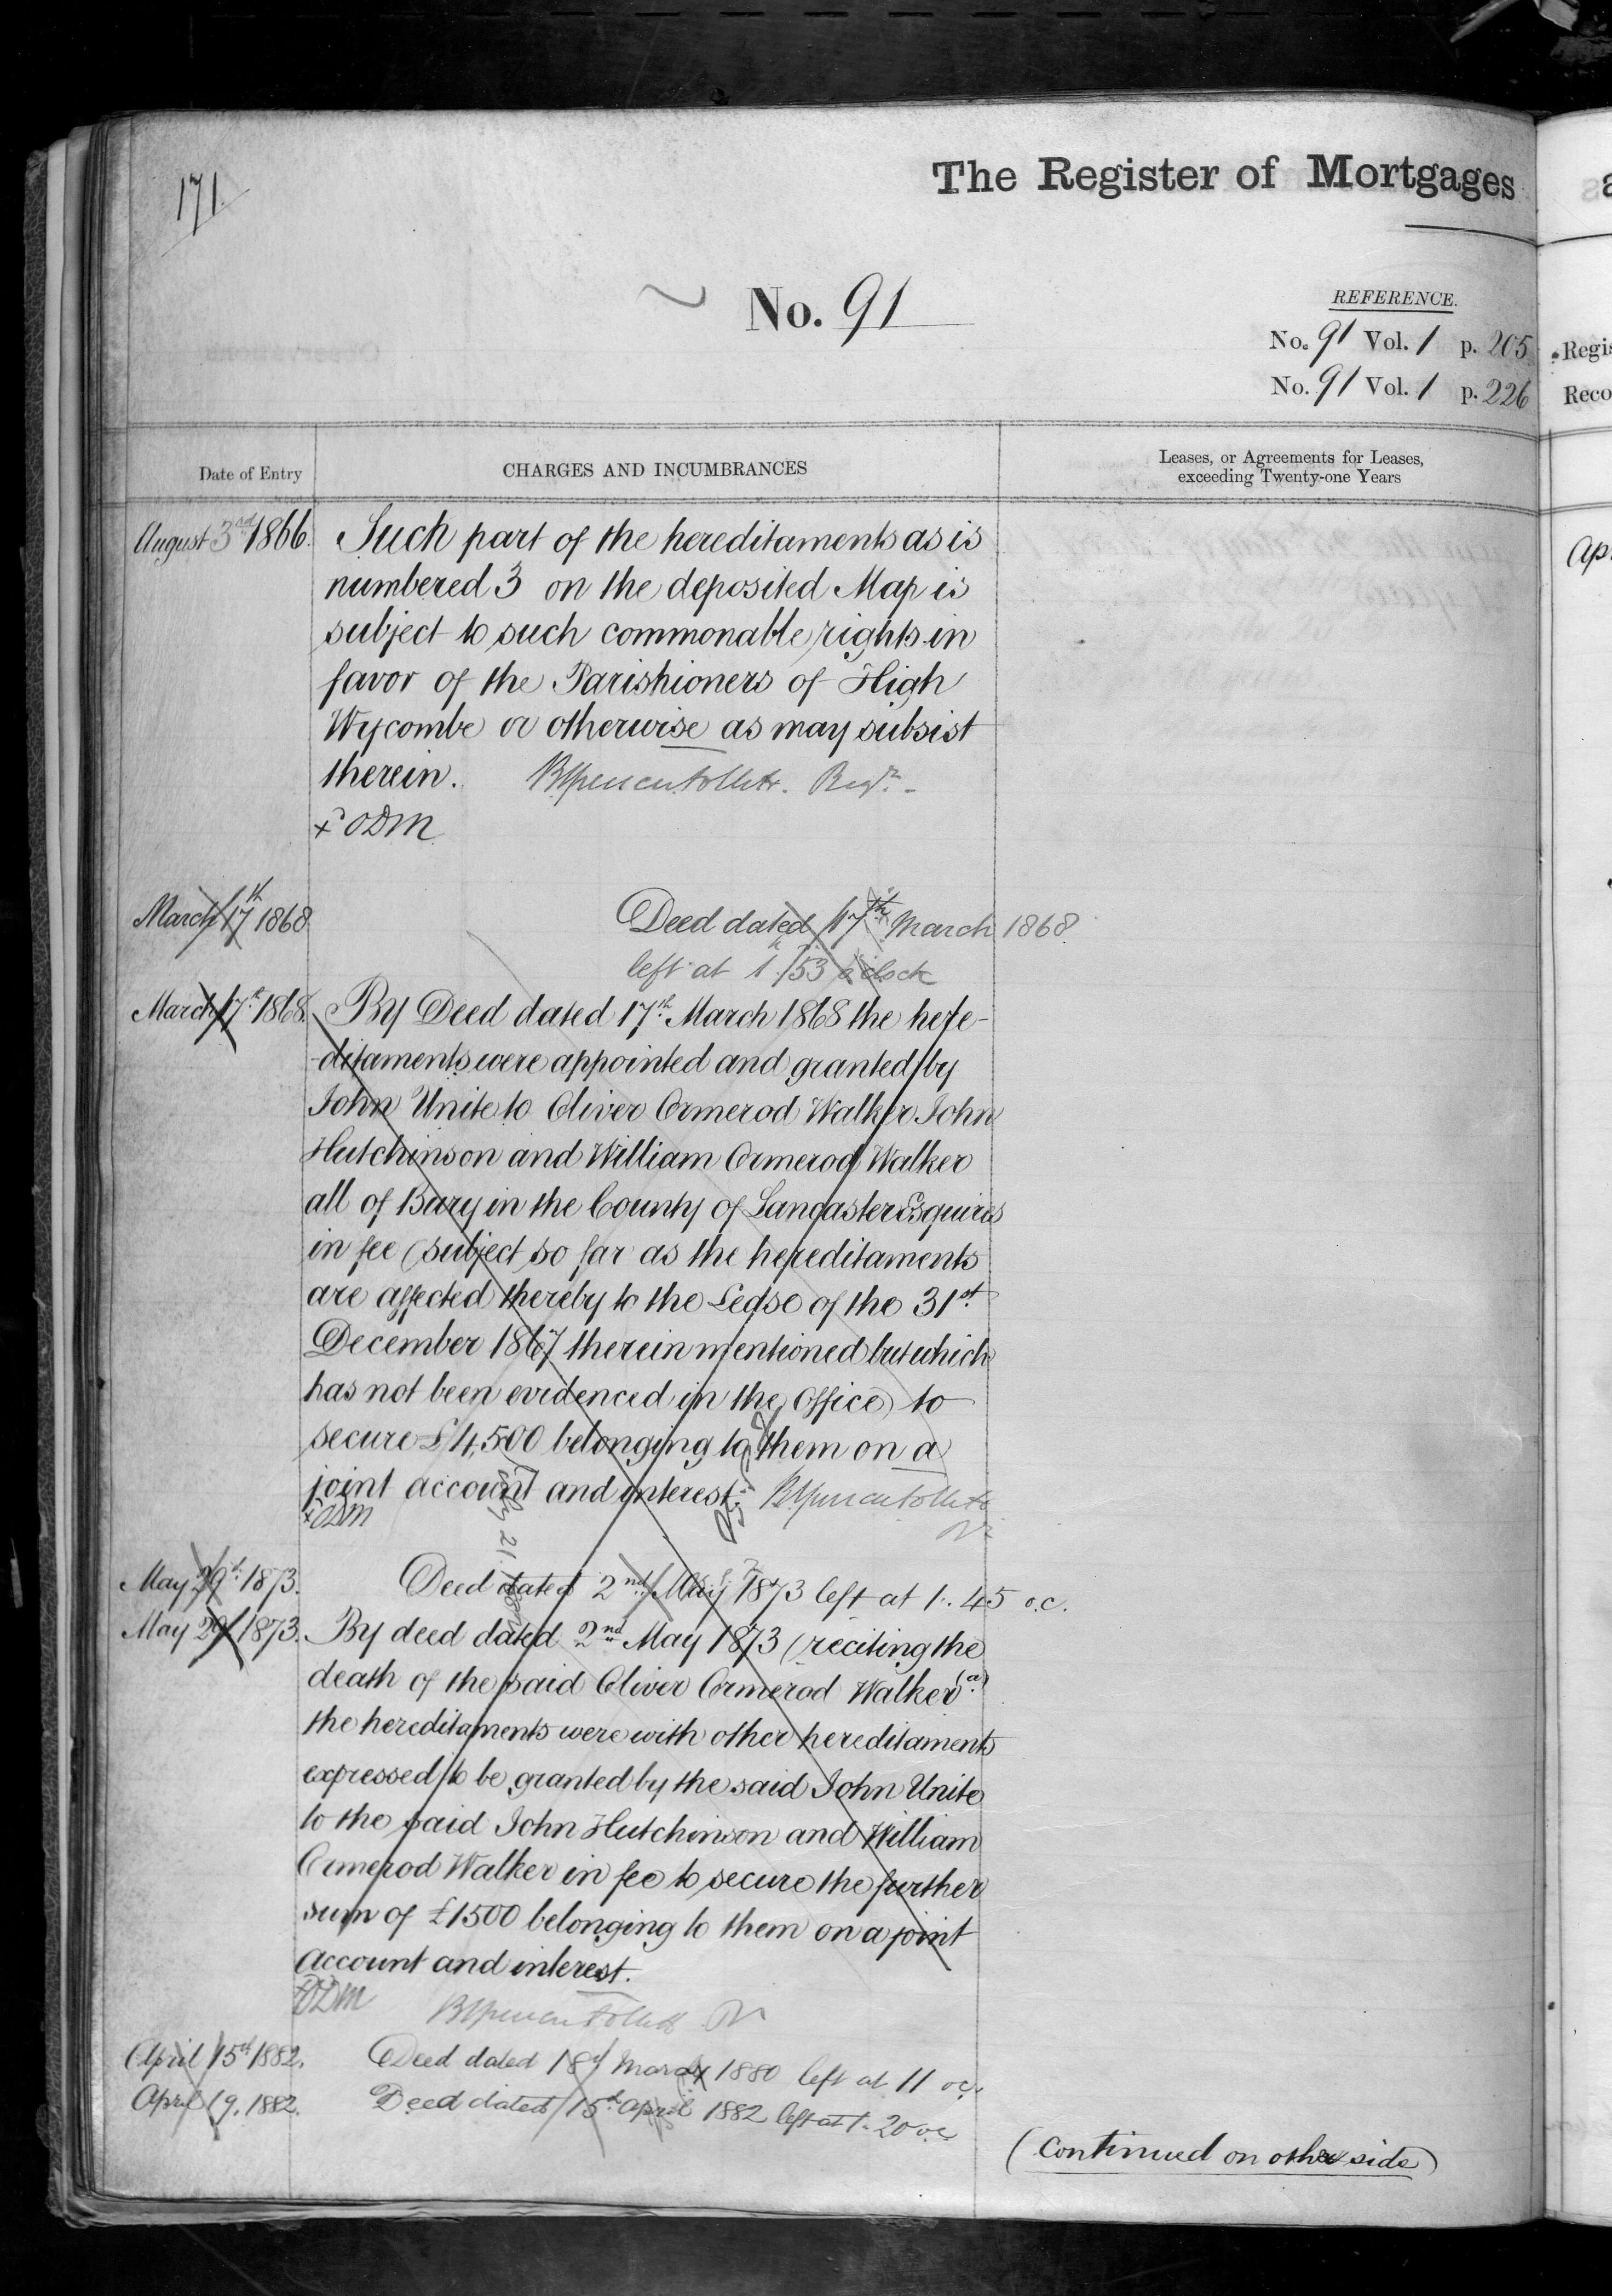 171
The Register of Mortgages
No. 91
REFERENCE.
No. 91 Vol. 1 p. 205
No. 91 Vol. 1 p. 226
Regis
Reco
Date of Entry
CHARGES AND INCUMBRANCES
Leases, or Agreements for Leases,
exceeding Twenty-one Years
August 3rd 1866.
Such part of the hereditaments as is
numbered 3 on the deposited Map is
subject to such commonable rights in
favor of the Parishioners of High
Wycombe or otherwise as may subsist
therein. Regr.
x ODM
March 17th 1868
Deed dated 17th March 1868
left at 1h. 53 o'clock
March 17th 1868.
By Deed dated 17th March 1868 the here-
-ditaments were appointed and granted by
John Unite to Oliver Ormerod Walker John
Hutchinson and William Ormerod Walker
all of Bury in the County of Lancaster Esquires
in fee (subject so far as the hereditaments
are affected thereby to the Lease of the 31st
December 1867 therein mentioned but which
has not been evidenced in the Office) to
secure £4,500 belonging to them on a
joint account and interest.
x ODM
May 29th 1873.
Deed dated 2nd May 1873 left at 1.45 o.c.
May 29 1873.
By deed dated 2nd May 1873 (reciting the
death of the said Oliver Ormerod Walker (a)
the hereditaments were with other hereditaments
expressed to be granted by the said John Unite
to the said John Hutchinson and William
Ormerod Walker in fee to secure the further
sum of £1500 belonging to them on a joint
account and interest.
x ODM
April 15th 1882.
Deed dated 18th March 1880 left at 11 o.c.
April 19. 1882.
Deed dated 15th April 1882 left at 1.20 o.c.
(Continued on other side)